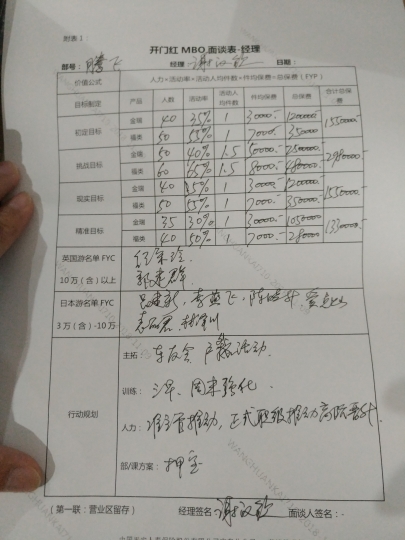 附表1：
开门红 MBO 面谈表-经理
部号：腾飞 经理：谢汉钦 日期：
价值公式 人力×活动率×活动人均件数×件均保费=总保费（FYP）
目标制定 产品 人数 活动率 活动人均件数 件均保费 总保费 合计总保费
初定目标 金瑞 40 35% 1 30000.- 1200000.- 1550000.-
福类 50 55% 1 7000.- 350000.-
挑战目标 金瑞 50 40% 1.5 50000.- 2500000.- 2980000.-
福类 60 65% 1.5 8000.- 480000.-
现实目标 金瑞 40 35% 1 30000.- 1200000.- 1550000.-
福类 50 55% 1 7000.- 350000.-
精准目标 金瑞 35 30% 1 30000.- 1050000.- 1330000.-
福类 40 50% 1 7000.- 280000.-
英国游名单 FYC
10万（含）以上
日本游名单 FYC
3万（含）-10万
行动规划
主拓：车友会、户籍活动.
训练：三早、周末强化.
人力：准主管推动，正式职级推动高阶晋升.
部/课方案：押宝
（第一联：营业区留存） 经理签名：谢汉钦 面谈人签名：-